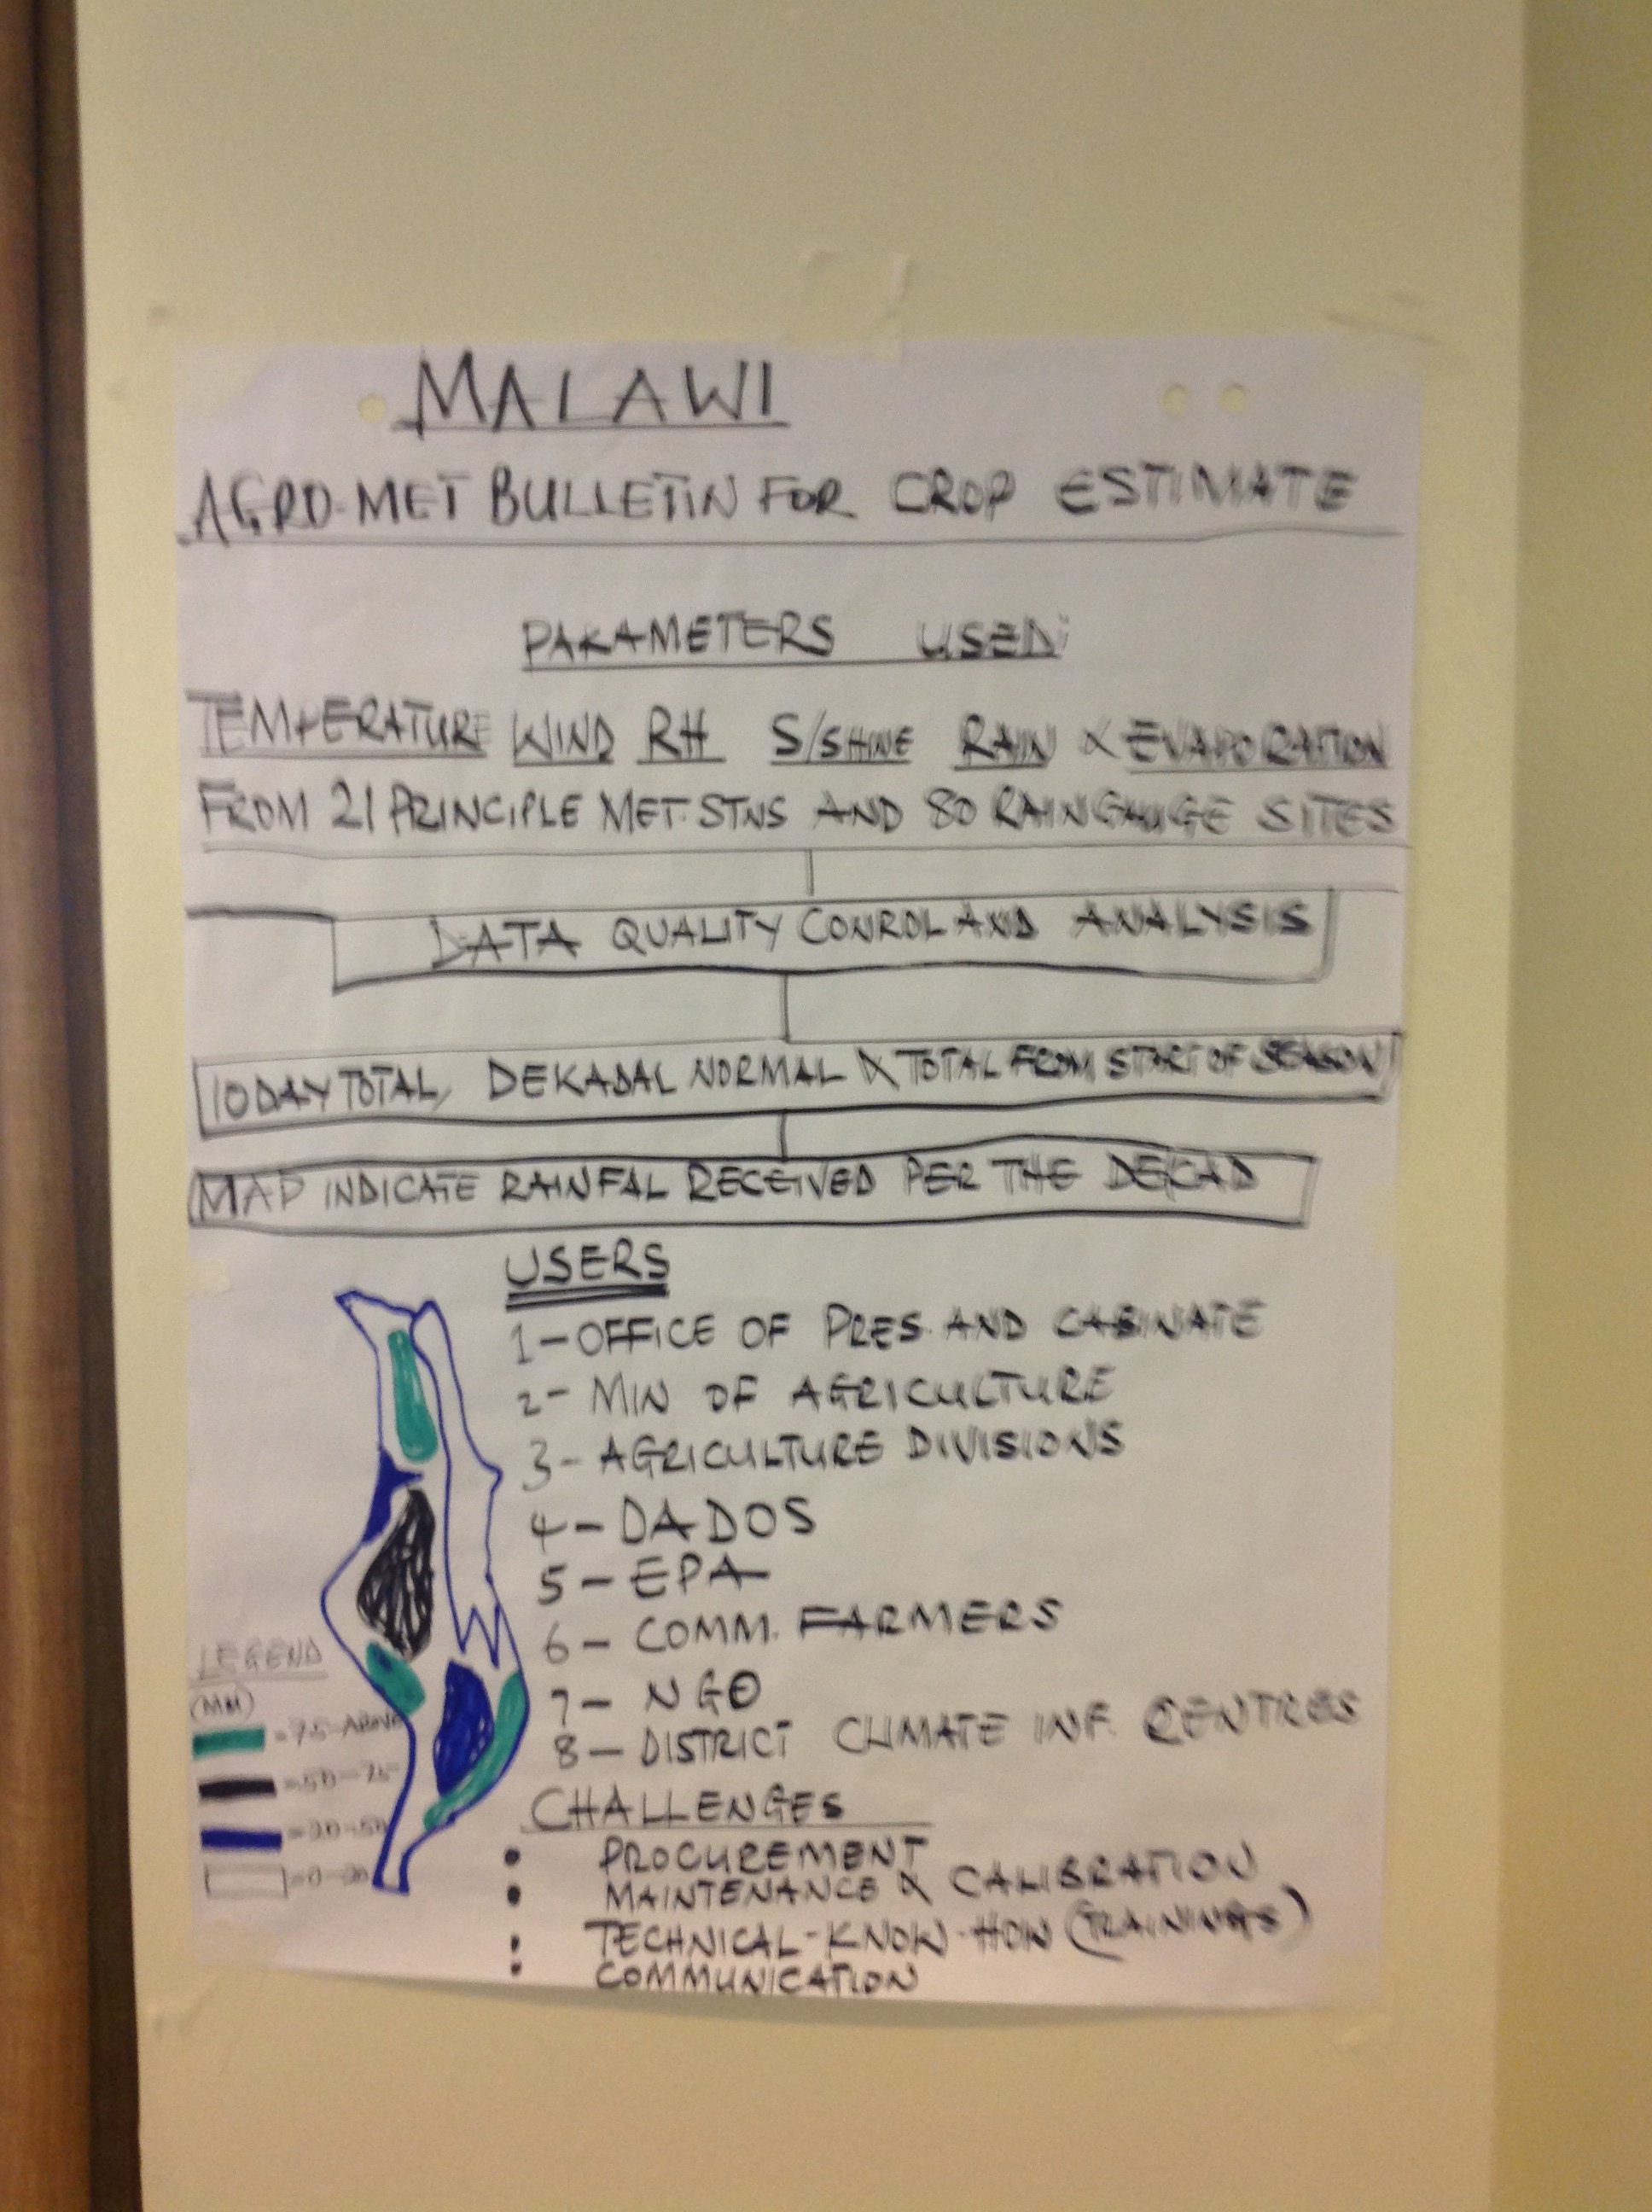 MALAWI
AGRO-MET BULLETIN FOR CROP ESTIMATE
PARAMETERS USED
TEMPERATURE WIND RH S/SHINE RAIN & EVAPORATION
FROM 21 PRINCIPLE MET. STNS AND 80 RAINGAUGE SITES
DATA QUALITY CONROL AND ANALYSIS
10 DAY TOTAL, DEKADAL NORMAL & TOTAL FROM START OF SEASON
MAP INDICATE RAINFAL RECEIVED PER THE DEKAD
USERS
1 - OFFICE OF PRES. AND CABINATE
2 - MIN OF AGRICULTURE
3 - AGRICULTURE DIVISIONS
4 - DADOS
5 - EPA
6 - COMM. FARMERS
7 - NGO
8 - DISTRICT CLIMATE INF. CENTRES
LEGEND
(MM)
= 75 - ABOVE
= 50 - 75
= 20 - 50
= 0 - 20
CHALLENGES
• PROCUREMENT
• MAINTENANCE & CALIBRATION
• TECHNICAL-KNOW-HOW (TRAININGS)
• COMMUNICATION